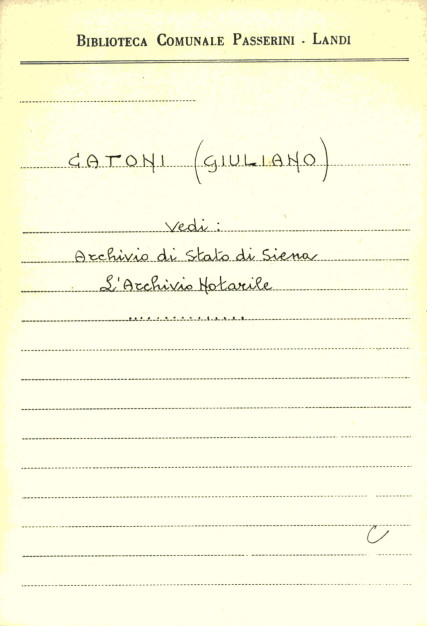 BIBLIOTECA COMUNALE PASSERINI - LANDI
CATONI (GIULIANO)
Vedi:
Archivio di Stato di Siena
L'Archivio Notarile
..............
C